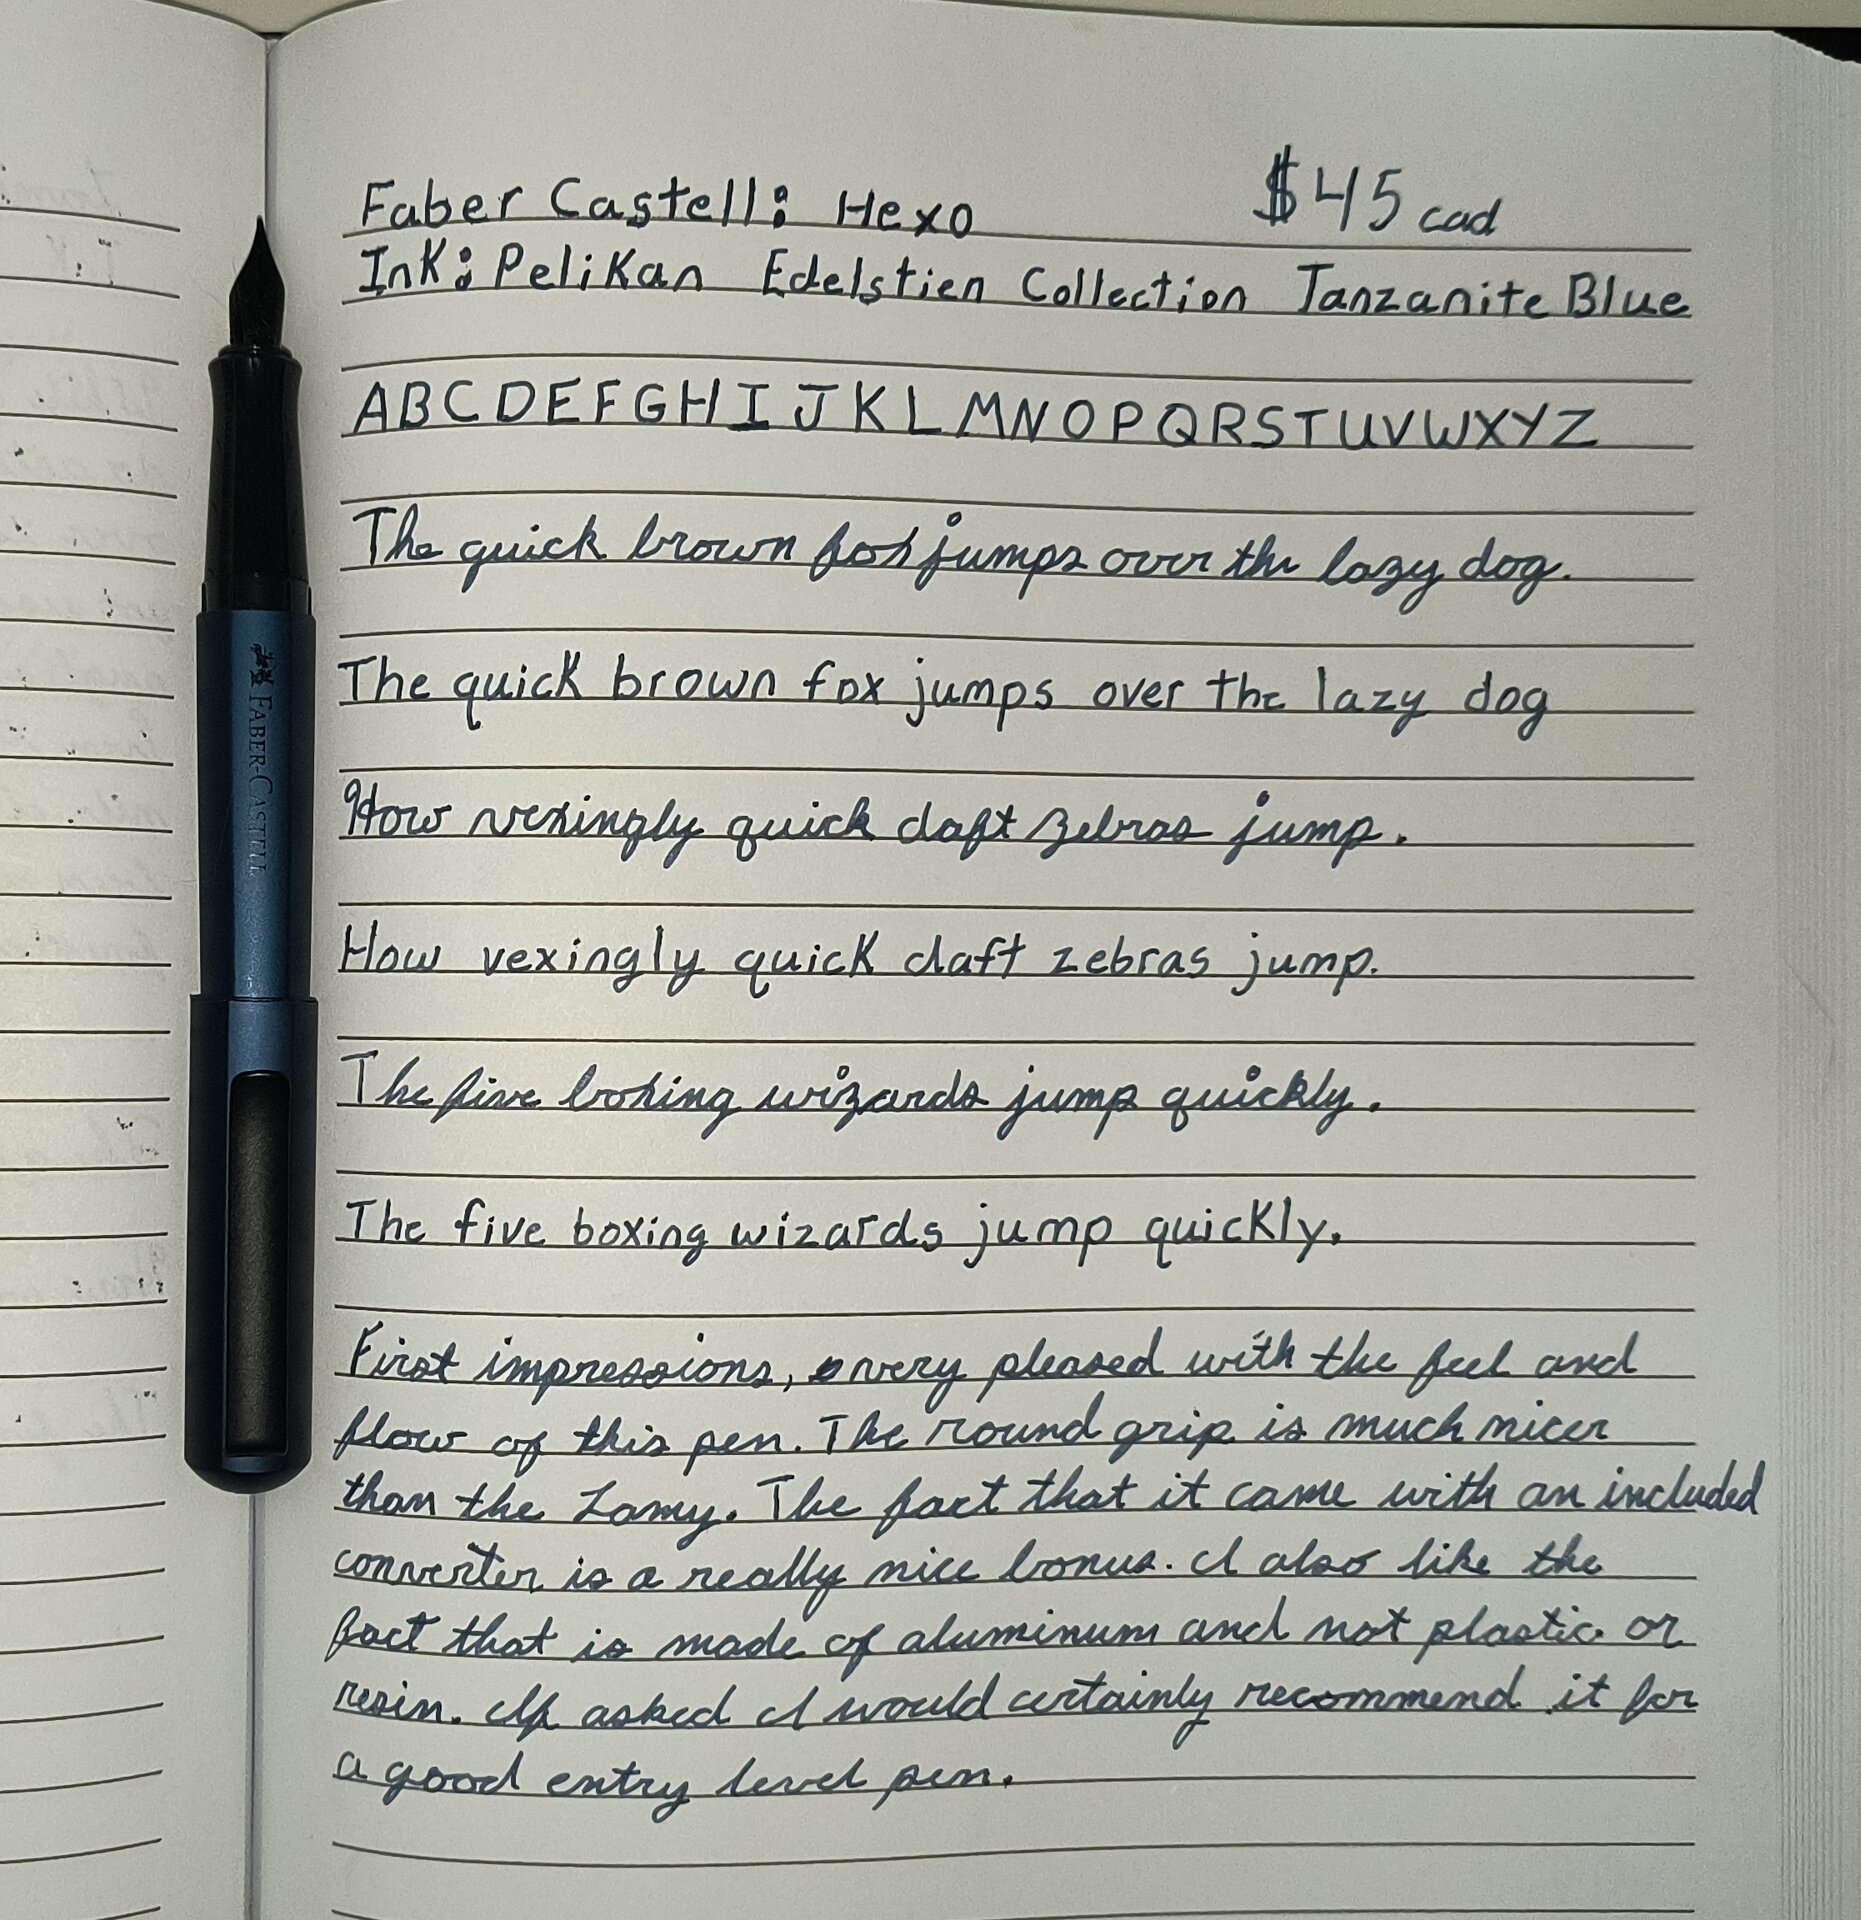 Faber Castell: Hexo $45 cad
Ink: Pelikan Edelstien Collection Tanzanite Blue
ABCDEFGHIJKLMNOPQRSTUVWXYZ
The quick brown fox jumps over the lazy dog.
The quick brown fox jumps over the lazy dog
How vexingly quick daft zebras jump.
How vexingly quick daft zebras jump.
The five boxing wizards jump quickly.
The five boxing wizards jump quickly.
First impressions, very pleased with the feel and
flow of this pen. The round grip is much nicer
than the Lamy. The fact that it came with an included
converter is a really nice bonus. I also like the
fact that is made of aluminum and not plastic or
resin. If asked I would certainly recommend it for
a good entry level pen.
FABER-CASTELL